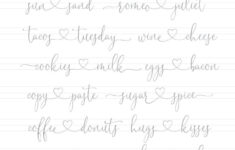 sun♡sand romeo♡juliet
tacos♡tuesday wine♡cheese
cookies♡milk eggs♡bacon
copy♡paste sugar♡spice
coffee♡donuts hugs♡kisses